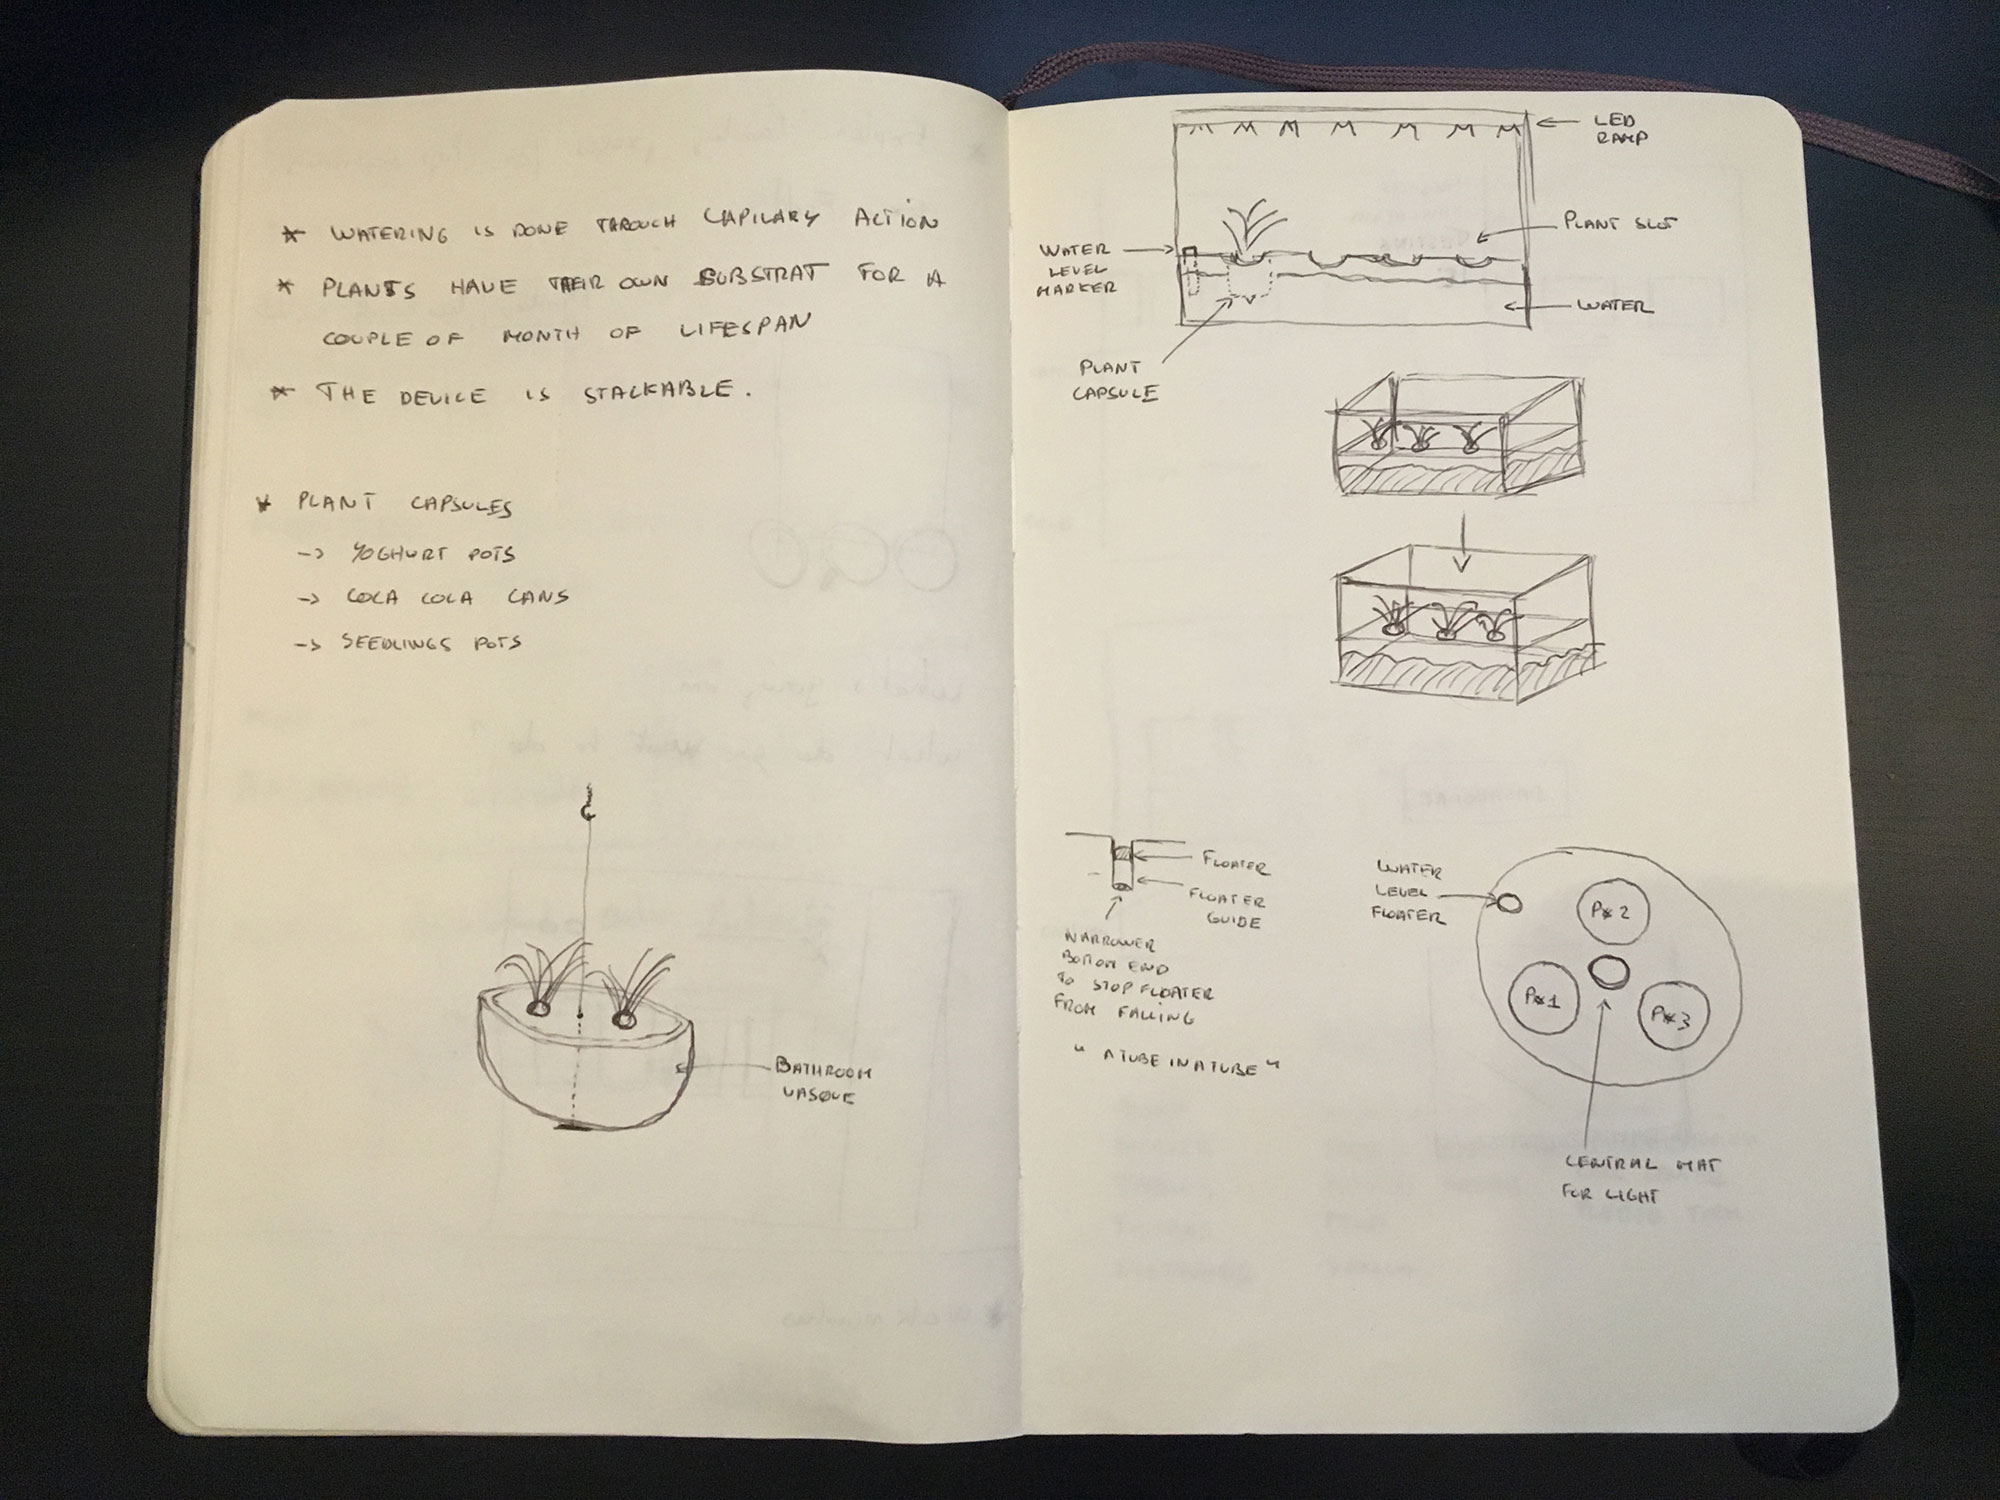 * WATERING IS DONE THROUGH CAPILARY ACTION
* PLANTS HAVE THEIR OWN SUBSTRAT FOR A
COUPLE OF MONTH OF LIFESPAN
* THE DEVICE IS STACKABLE.
* PLANT CAPSULES
-> YOGHURT POTS
-> COLA COLA CANS
-> SEEDLINGS POTS
BATHROOM
VASQUE
LED
RAMP
PLANT SLOT
WATER
LEVEL
MARKER
WATER
PLANT
CAPSULE
FLOATER
FLOATER
GUIDE
NARROWER
BOTOM END
TO STOP FLOATER
FROM FALLING
"A TUBE IN A TUBE"
WATER
LEVEL
FLOATER
P*2
P*1
P*3
CENTRAL MAT
FOR LIGHT